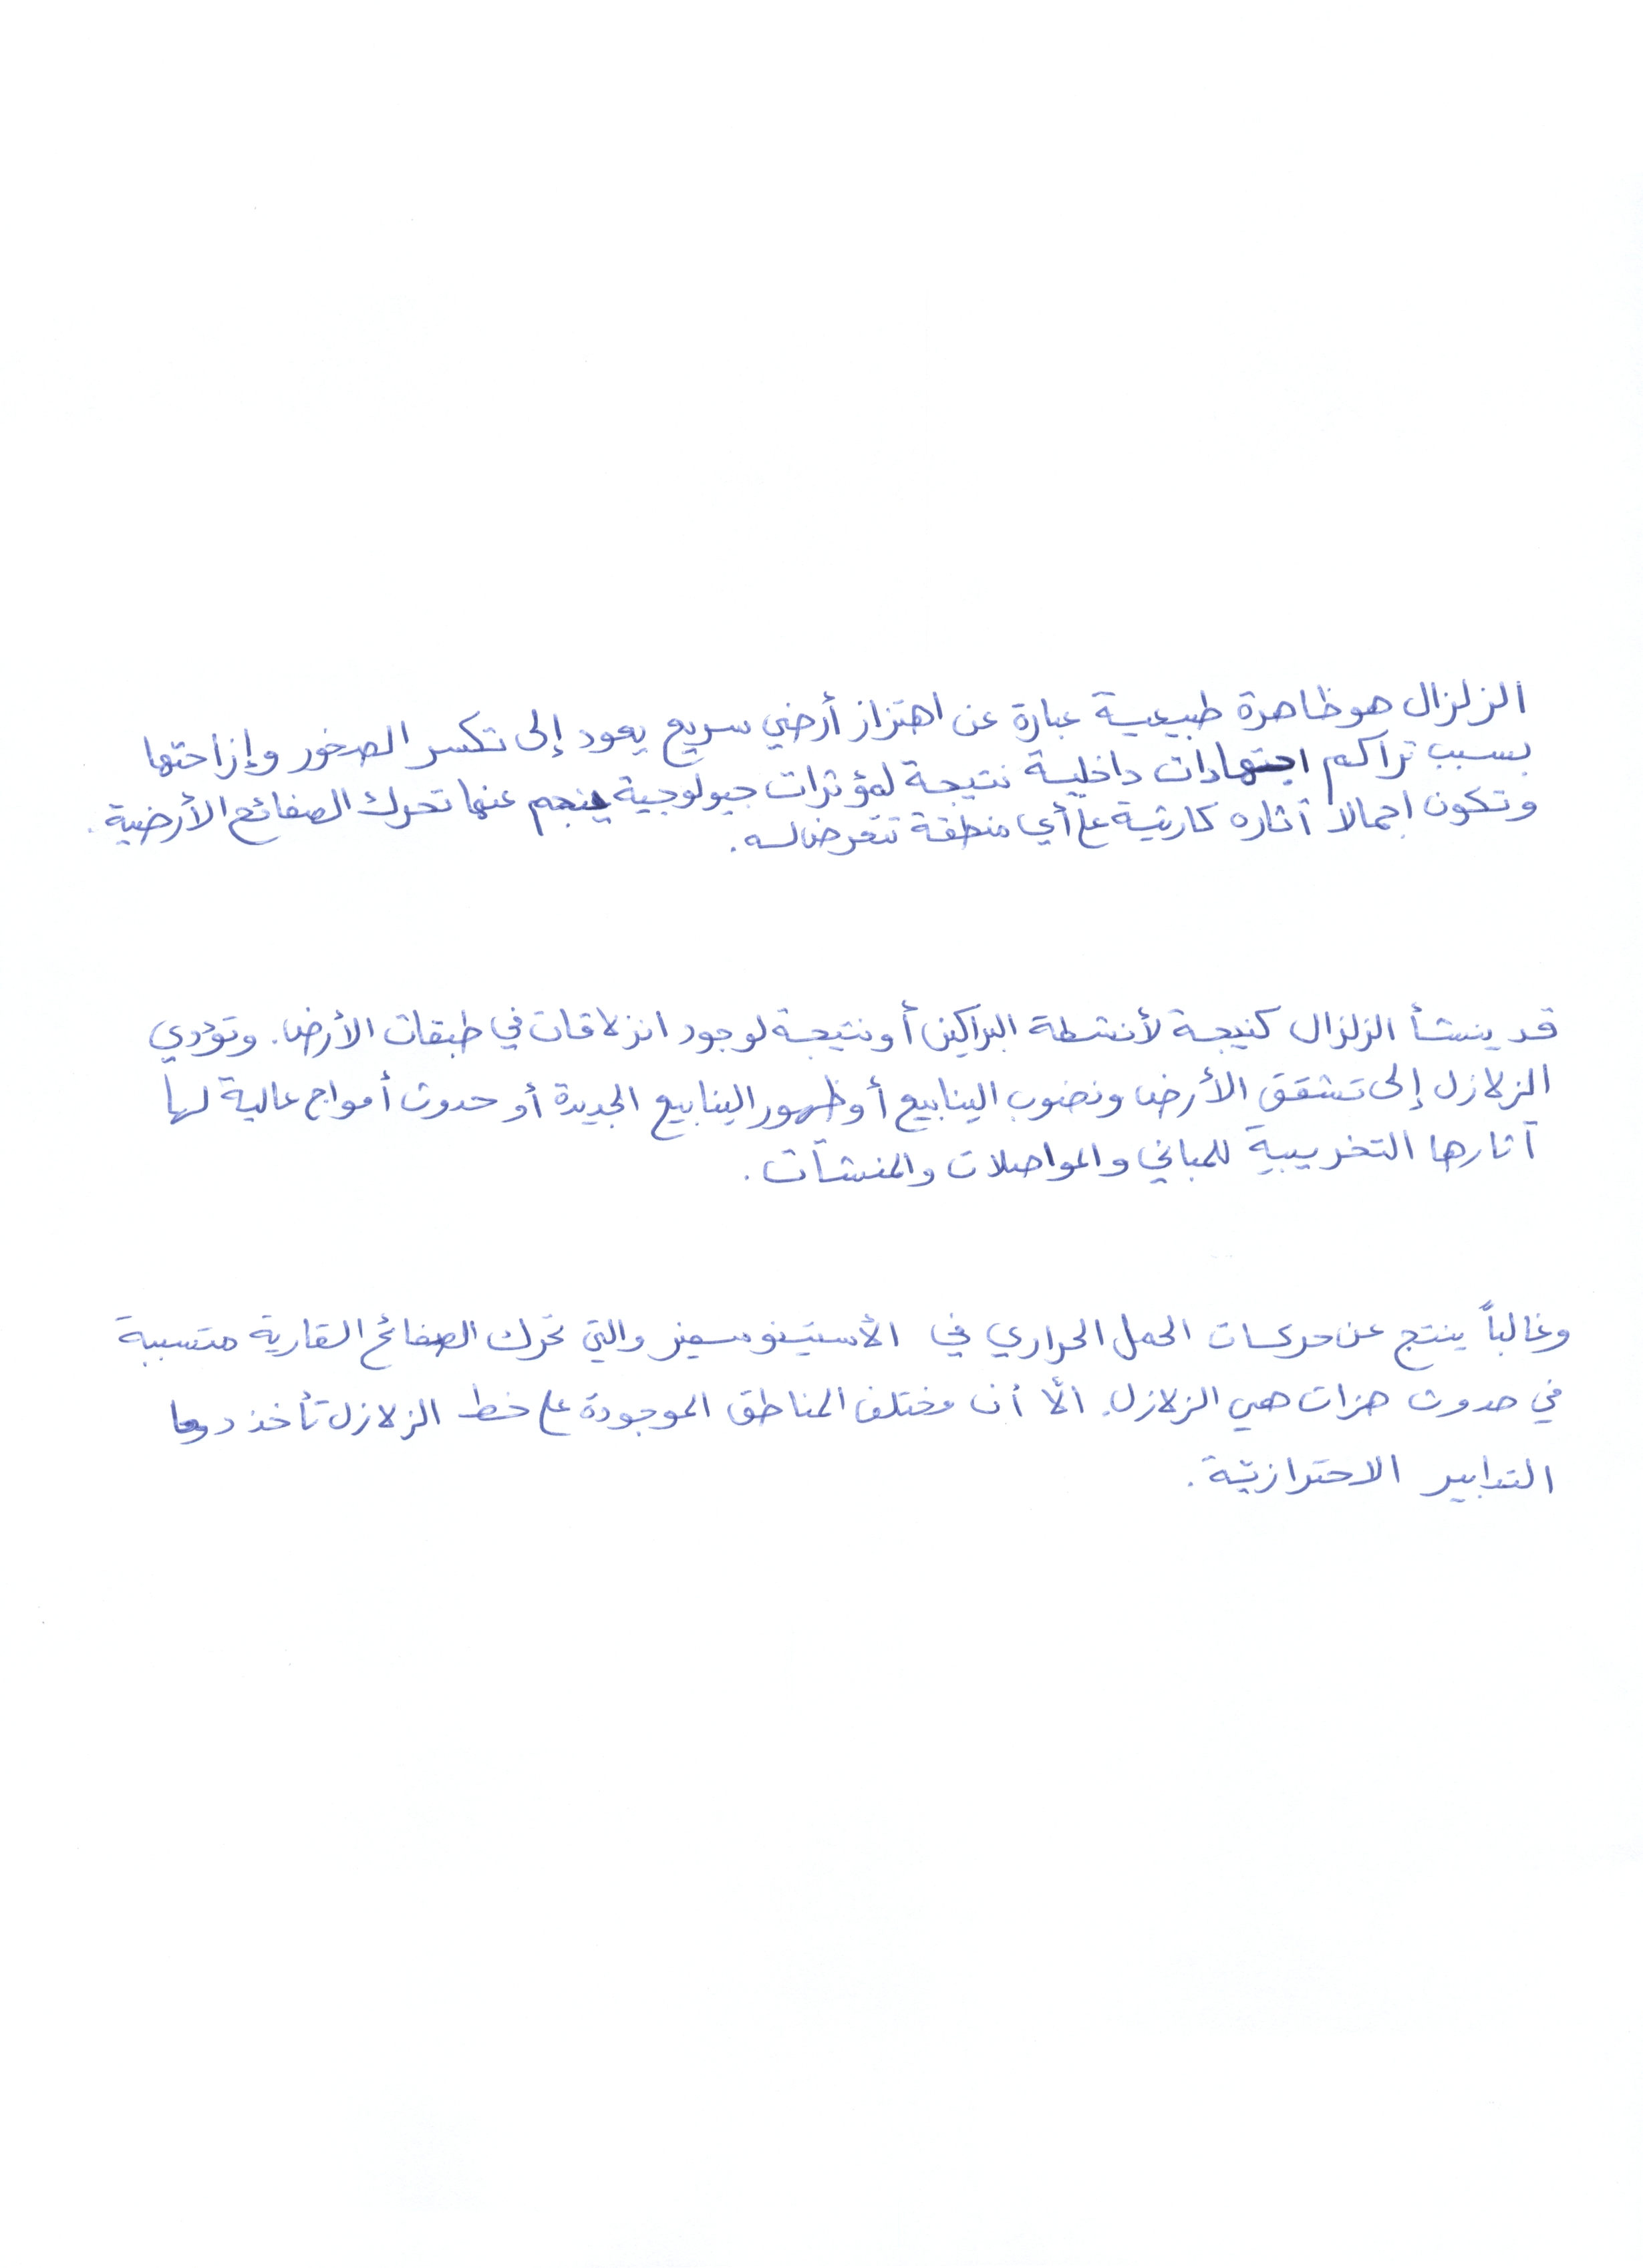 الزلزال هو ظاهرة طبيعية عبارة عن اهتزاز أرضي سريع يعود إلى تكسر الصخور وإزاحتها
بسبب تراكم اجتهادات داخلية نتيجة لمؤثرات جيولوجية ينجم عنها تحرك الصفائح الأرضية.
وتكون اجمالا آثاره كارثية على أي منطقة تتعرض له.
قد ينشأ الزلزال كنتيجة لأنشطة البراكين أو نتيجة لوجود انزلاقات في طبقات الأرض. وتؤدي
الزلازل إلى تشقق الأرض ونضوب الينابيع أو ظهور الينابيع الجديدة أو حدوث أمواج عالية لها
آثارها التخريبية للمباني والمواصلات والمنشآت.
وغالباً ينتج عن حركات الحمل الحراري في الأستينوسفير والتي تحرك الصفائح القارية متسببة
في حدوث هزات هي الزلازل. الّا أن مختلف المناطق الموجودة على خط الزلازل تأخذ دوما
التدابير الاحترازيّة.